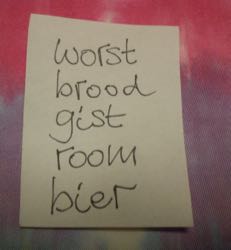 worst
brood
gist
room
bier